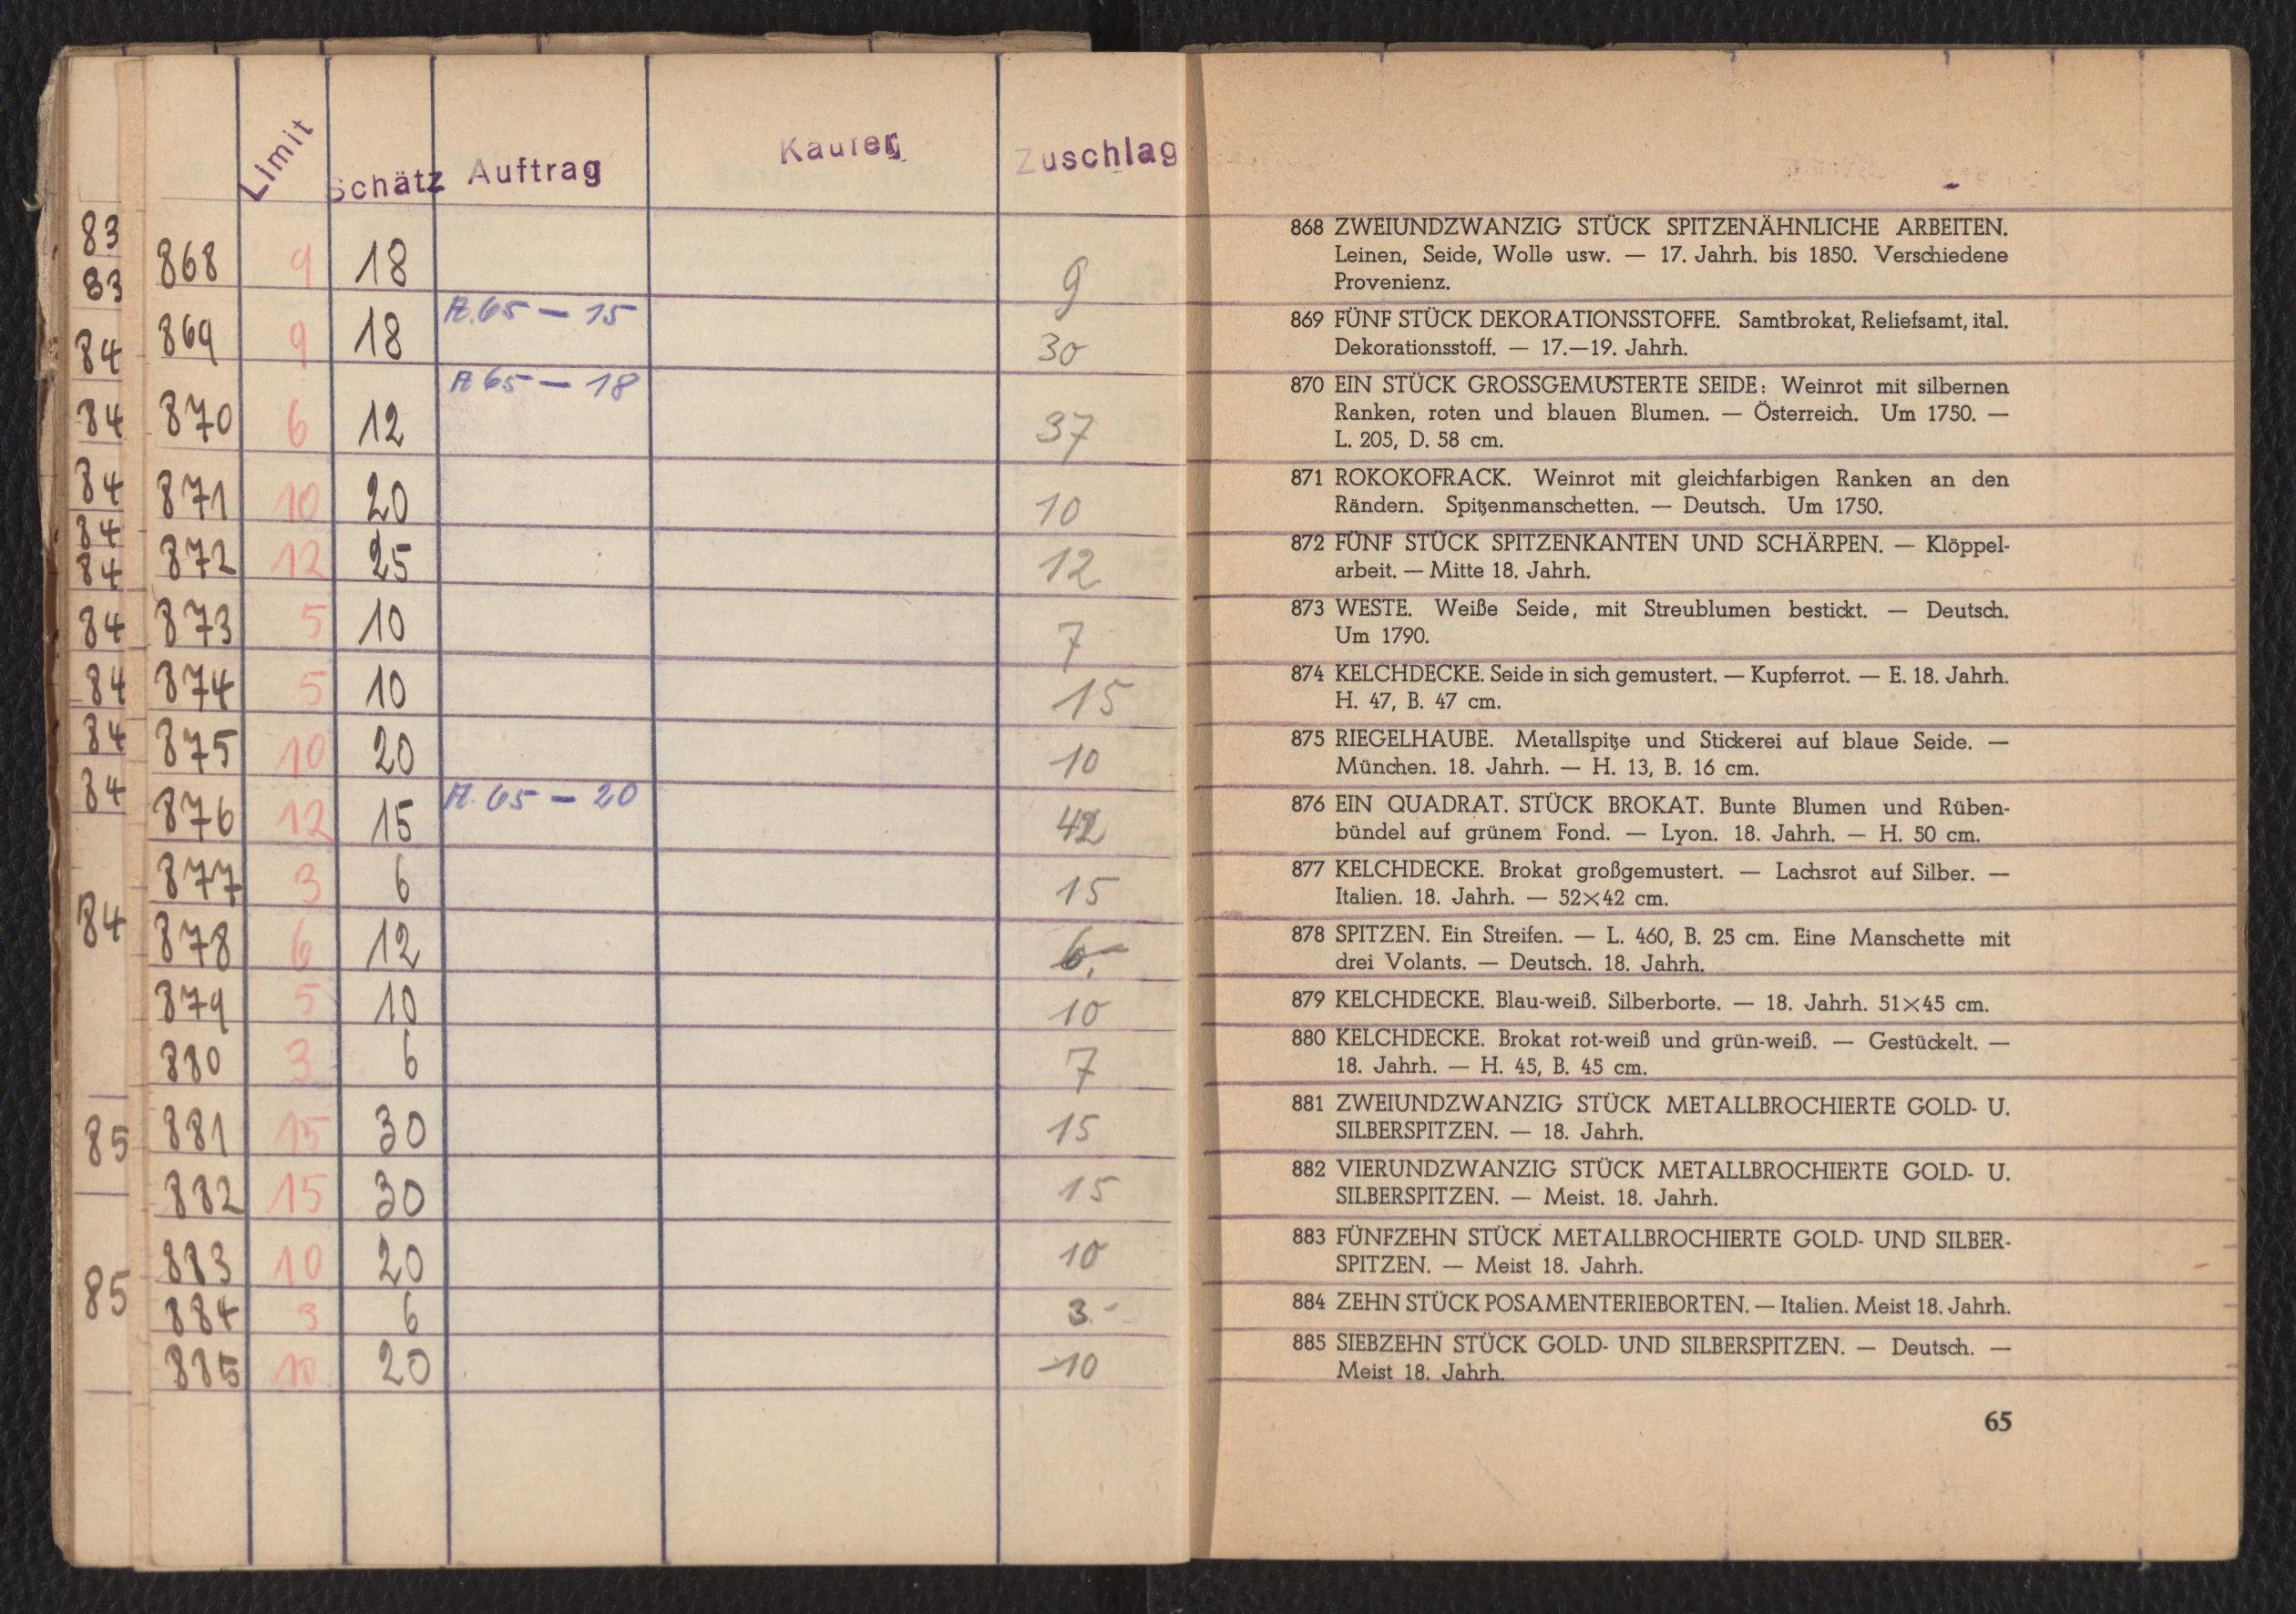 Limit Schätz Auftrag Käufer Zuschlag
83
83
84
84
84
84
84
84
84
84
84
84
85
85
868 9 18 9
869 9 18 A.65 — 15 30
870 6 12 A 65 — 18 37
871 10 20 10
872 12 25 12
873 5 10 7
874 5 10 15
875 10 20 10
876 12 15 A. 65 — 20 42
877 3 6 15
878 6 12 6.—
879 5 10 10
880 3 6 7
881 15 30 15
882 15 30 15
883 10 20 10
884 3 6 3.-
885 10 20 10
868 ZWEIUNDZWANZIG STÜCK SPITZENÄHNLICHE ARBEITEN.
Leinen, Seide, Wolle usw. — 17. Jahrh. bis 1850. Verschiedene
Provenienz.
869 FÜNF STÜCK DEKORATIONSSTOFFE. Samtbrokat, Reliefsamt, ital.
Dekorationsstoff. — 17.—19. Jahrh.
870 EIN STÜCK GROSSGEMUSTERTE SEIDE: Weinrot mit silbernen
Ranken, roten und blauen Blumen. — Österreich. Um 1750. —
L. 205, D. 58 cm.
871 ROKOKOFRACK. Weinrot mit gleichfarbigen Ranken an den
Rändern. Spitzenmanschetten. — Deutsch. Um 1750.
872 FÜNF STÜCK SPITZENKANTEN UND SCHÄRPEN. — Klöppel-
arbeit. — Mitte 18. Jahrh.
873 WESTE. Weiße Seide, mit Streublumen bestickt. — Deutsch.
Um 1790.
874 KELCHDECKE. Seide in sich gemustert. — Kupferrot. — E. 18. Jahrh.
H. 47, B. 47 cm.
875 RIEGELHAUBE. Metallspitze und Stickerei auf blaue Seide. —
München. 18. Jahrh. — H. 13, B. 16 cm.
876 EIN QUADRAT. STÜCK BROKAT. Bunte Blumen und Rüben-
bündel auf grünem Fond. — Lyon. 18. Jahrh. — H. 50 cm.
877 KELCHDECKE. Brokat großgemustert. — Lachsrot auf Silber. —
Italien. 18. Jahrh. — 52×42 cm.
878 SPITZEN. Ein Streifen. — L. 460, B. 25 cm. Eine Manschette mit
drei Volants. — Deutsch. 18. Jahrh.
879 KELCHDECKE. Blau-weiß. Silberborte. — 18. Jahrh. 51×45 cm.
880 KELCHDECKE. Brokat rot-weiß und grün-weiß. — Gestückelt. —
18. Jahrh. — H. 45, B. 45 cm.
881 ZWEIUNDZWANZIG STÜCK METALLBROCHIERTE GOLD- U.
SILBERSPITZEN. — 18. Jahrh.
882 VIERUNDZWANZIG STÜCK METALLBROCHIERTE GOLD- U.
SILBERSPITZEN. — Meist. 18. Jahrh.
883 FÜNFZEHN STÜCK METALLBROCHIERTE GOLD- UND SILBER-
SPITZEN. — Meist 18. Jahrh.
884 ZEHN STÜCK POSAMENTERIEBORTEN. — Italien. Meist 18. Jahrh.
885 SIEBZEHN STÜCK GOLD- UND SILBERSPITZEN. — Deutsch. —
Meist 18. Jahrh.
65